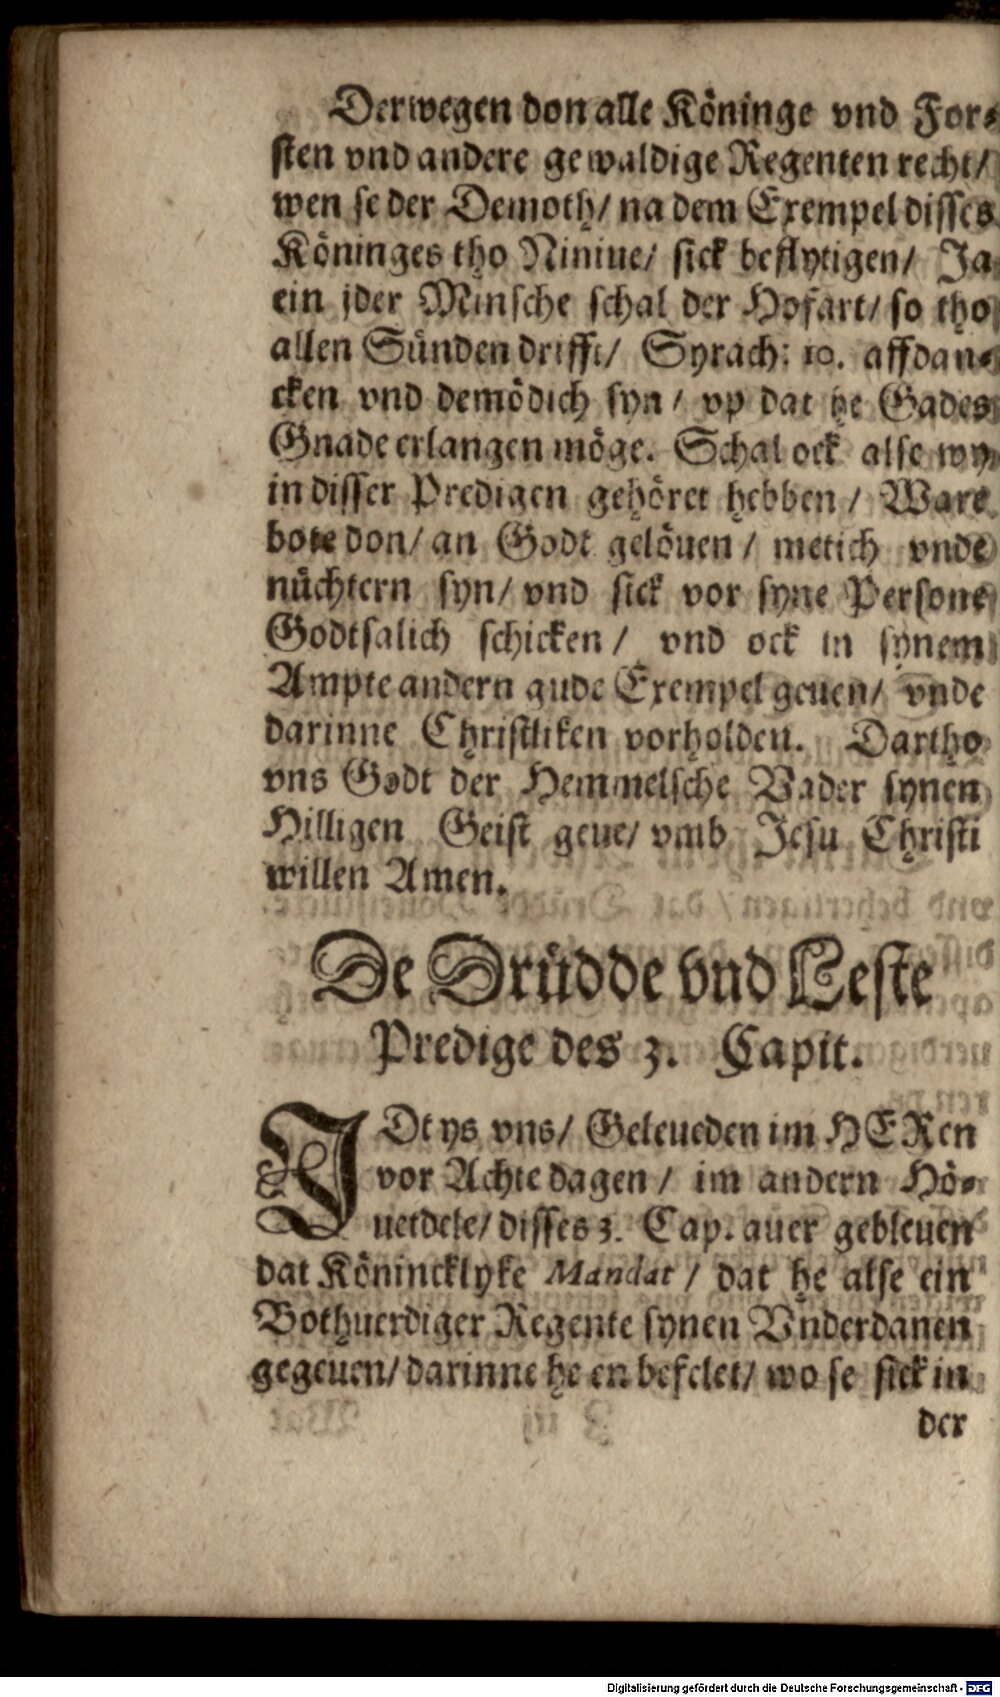 Derwegen don alle Köninge vnd For⸗
sten vnd andere gewaldige Regenten recht/
wen se der Demoth/ na dem Exempel disses
Köninges tho Niniue/ sick beflytigen/ Ja
ein jder Minsche schal der Hofart/ so tho
allen Sünden drifft/ Syrach: 10. affdan⸗
cken vnd demödich syn/ vp dat he Gades
Gnade erlangen möge. Schal ock alse wy
in disser Predigen gehöret hebben/ Ware
bote don/ an Godt gelöuen/ metich vnde
nüchtern syn/ vnd sick vor syne Persone
Godtsalich schicken/ vnd ock in synem
Ampte andern gude Exempel geuen/ vnde
darinne Christliken vorholden. Dartho
vns Godt der Hemmelsche Vader synen
Hilligen Geist geue/ vmb Jesu Christi
willen Amen.
De Drüdde vnd Leste
Predige des 3. Capit.
JDt ys vns/ Geleueden im HERen
vor Achte dagen/ im andern Hö⸗
uetdele/ disses 3. Cap. auer gebleuen
dat Könincklyke Mandat/ dat he alse ein
Bothuerdiger Regente synen Vnderdanen
gegeuen/ darinne he en befelet/ wo se sick in
der
Digitalisierung gefördert durch die Deutsche Forschungsgemeinschaft - DFG